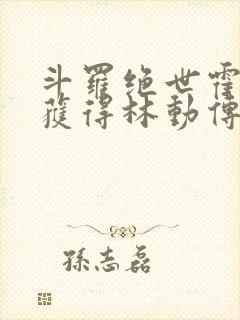 斗羅絕世霍
獲得林動傳
孫志磊